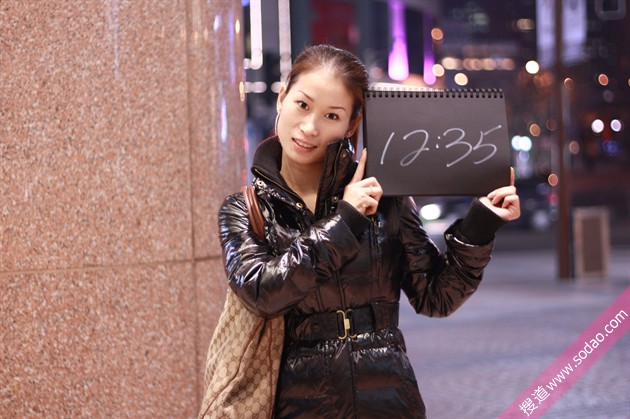 12:35
搜道 www.sodao.com